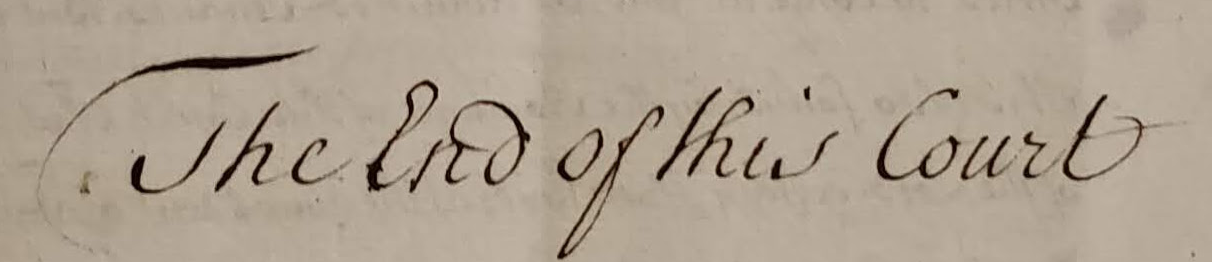 The End of this Court